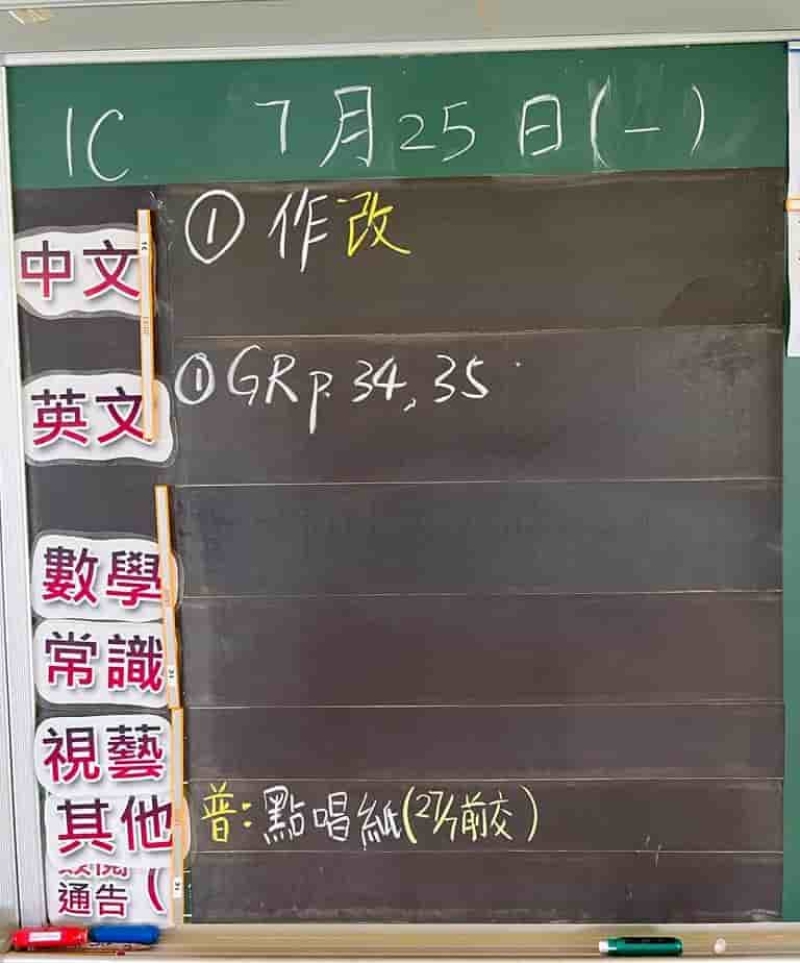 1C 7月25日(一)
中文 ① 作改
英文 ① GR p. 34, 35
數學
常識
視藝
其他 普：點唱紙(27/7前交)
通告 (